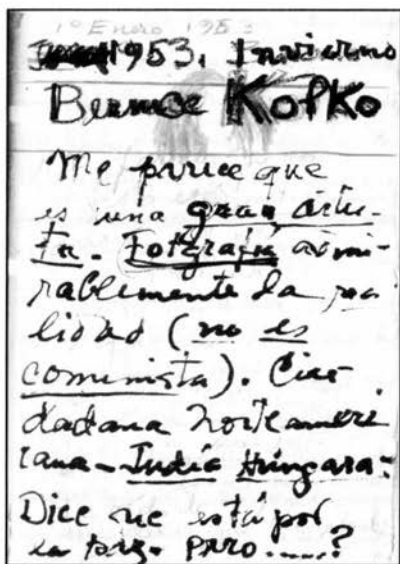 1º Enero 1953
1953. Invierno
Bernice Kolko
Me parece que
es una gran artis-
ta. Fotografía admi-
rablemente la rea
lidad (no es
comunista). Ciu-
dadana Norteameri
cana - Judía Húngara:
Dice que está por
la paz. Pero.....?